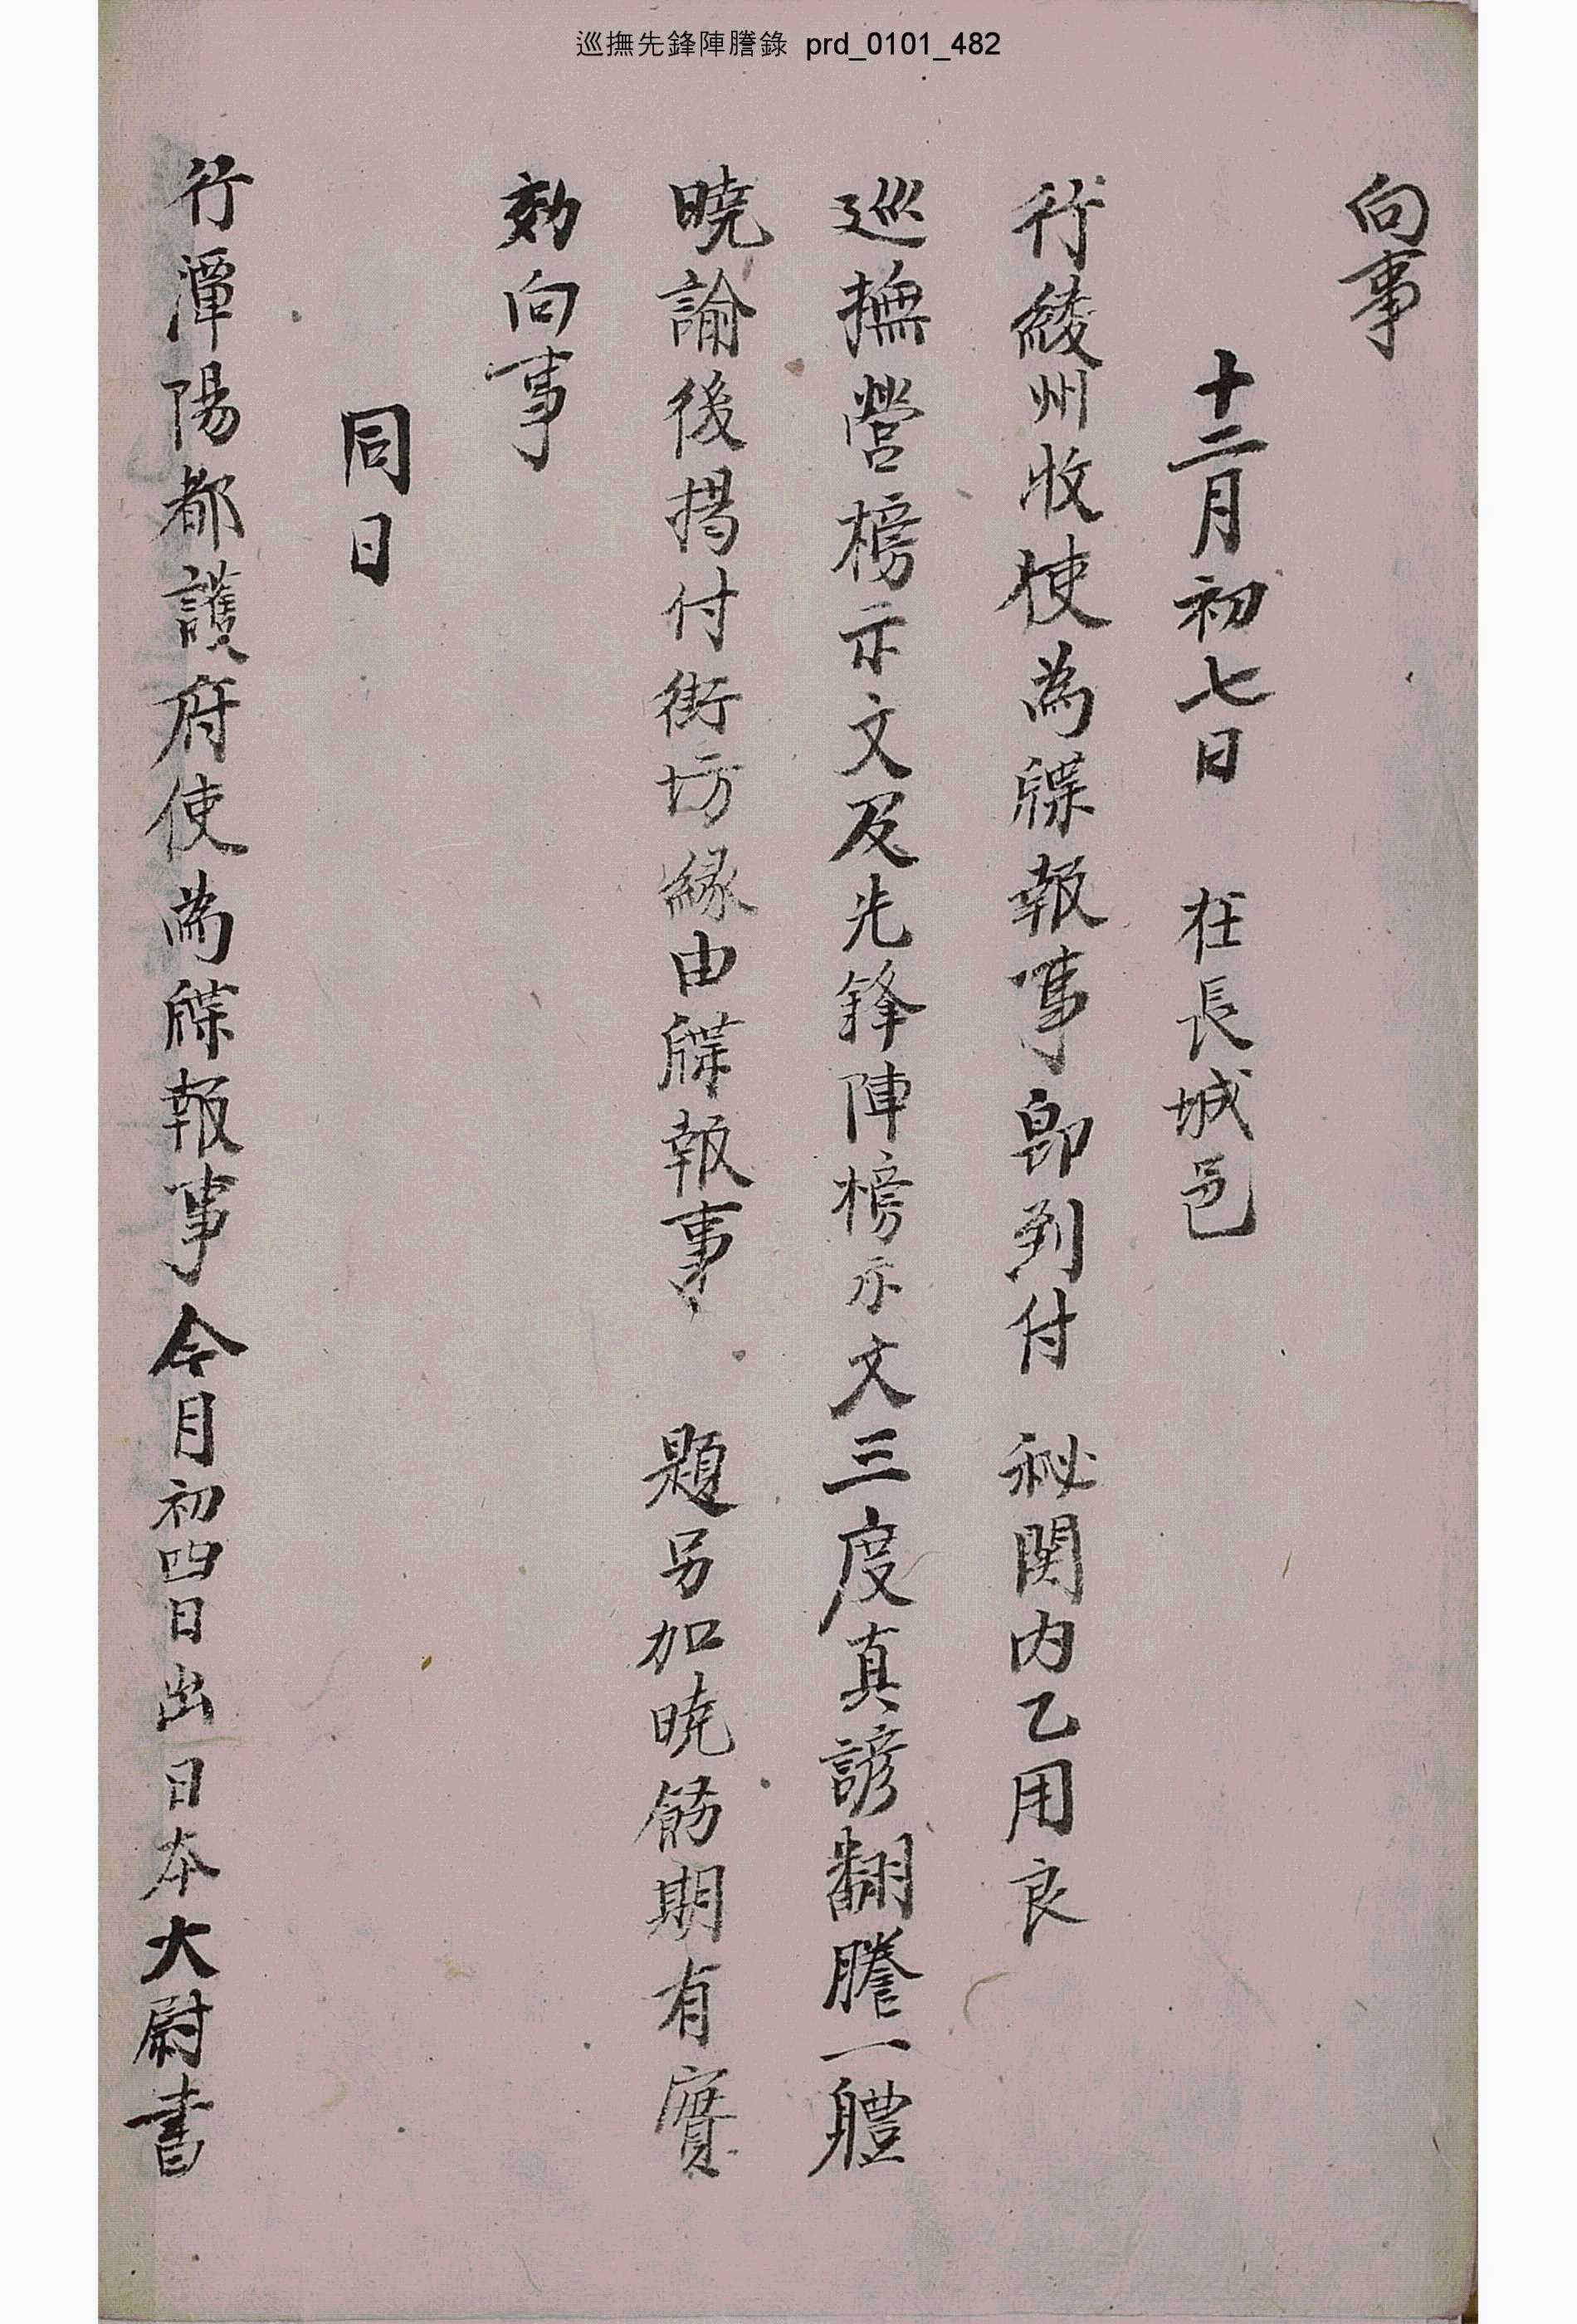 巡撫先鋒陣謄錄 prd_0101_482
向事
十二月初七日 在長城邑
行綾州牧使為牒報事卽到付 秘関內乙用良
巡撫營榜示文及先鋒陣榜示文三度真諺翻謄一軆
曉諭後揭付街坊緣由牒報事 題另加曉飭期有實
効向事
同日
行潭陽都護府使為牒報事今月初四日出日本大尉書